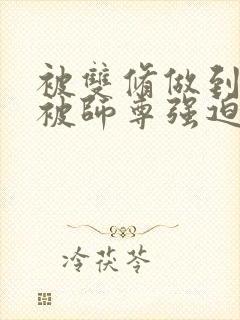 被雙脩做到
被師尊强迫
冷茯苓